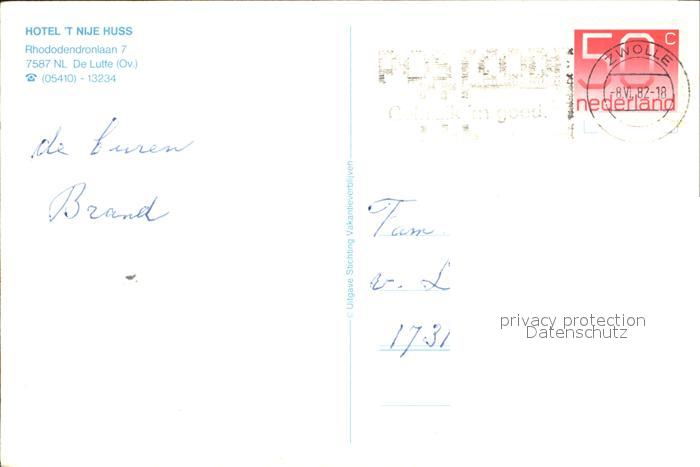 HOTEL 'T NIJE HUSS
Rhododendronlaan 7
7587 NL De Lutte (Ov.)
☎ (05410) - 13234
de buren
Brand
© Uitgave Stichting Vakantieverblijven
POSTCODE
Gebruik 'm goed.
50 c
nederland
ZWOLLE
-8.VI.82-18
Fam.
v. L
1731
privacy protection
Datenschutz